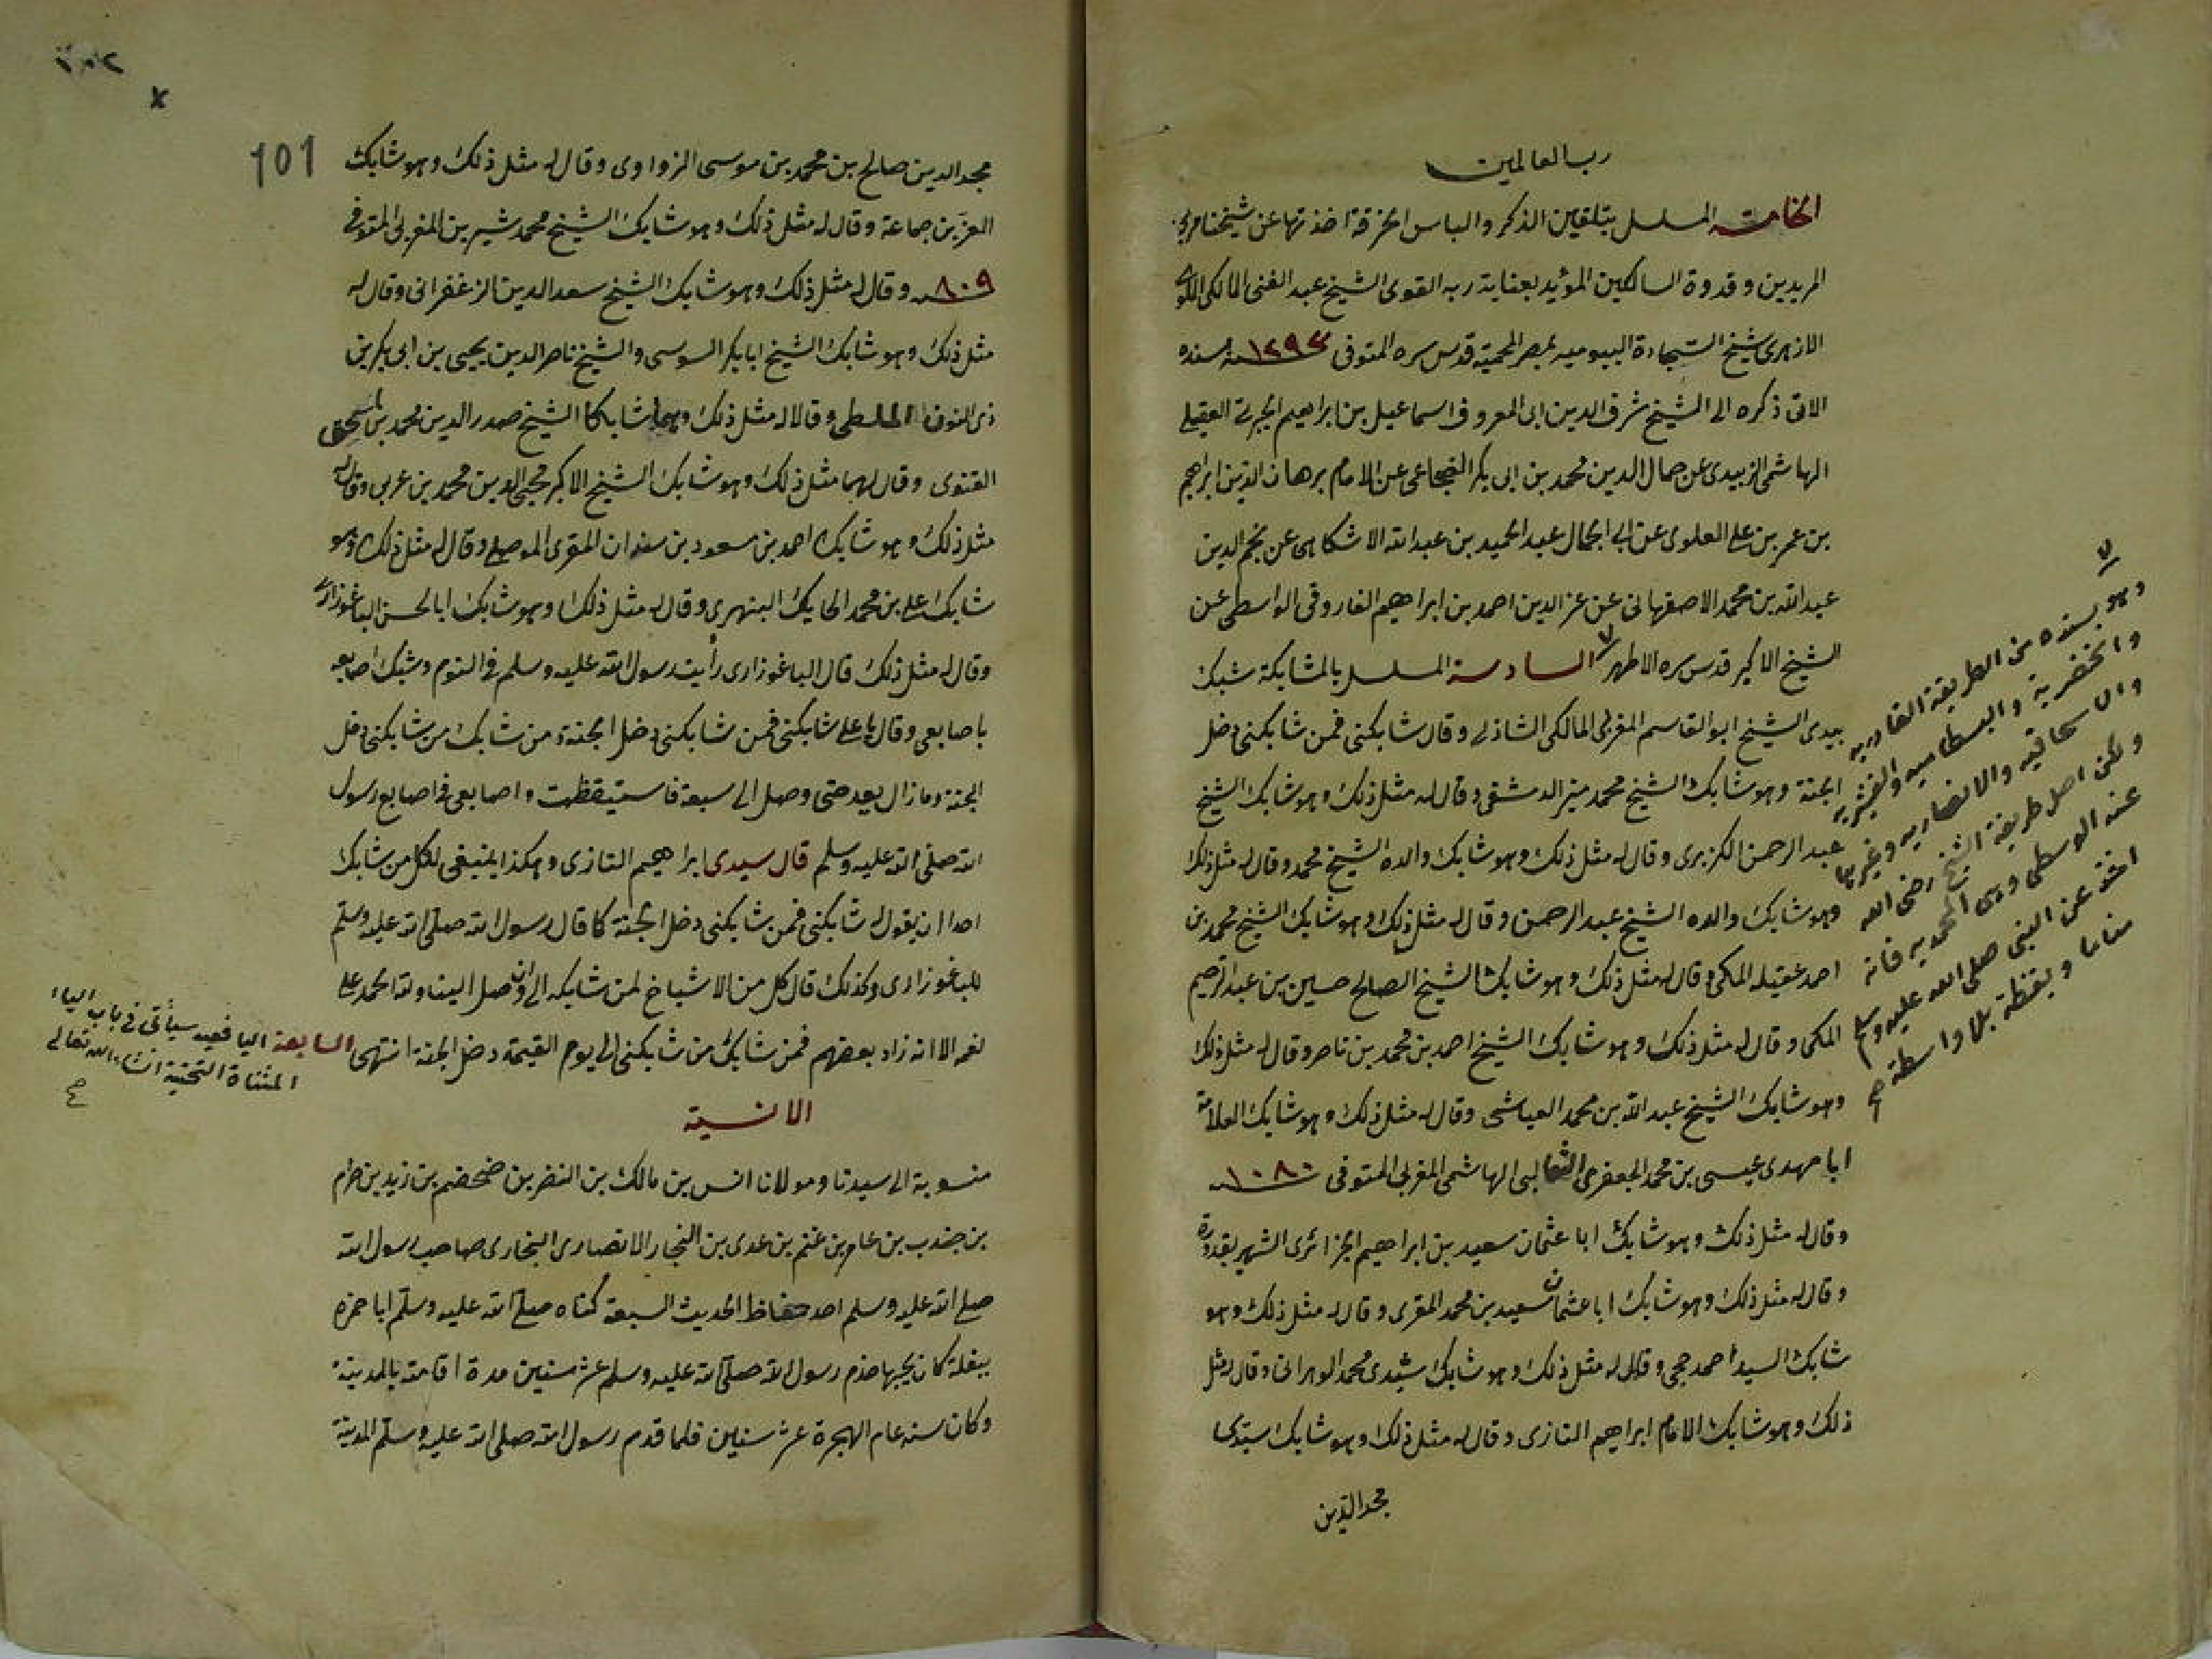 رب العالمين
الخامسة المسلسل بتلقين الذكر والباس الخرقة اخذتها عن شيخنا مربي
المريدين وقدوة السالكين المؤيد بعناية ربه القوى الشيخ عبد الغنى المالكى
الازهرى شيخ السجادة البيوميه بمصر المحمية قدس سره المتوفى سنه بسنده
الاتى ذكره الى الشيخ شرف الدين ابى المعروف اسماعيل بن ابراهيم الجبرتى العقيلى
الهاشمى الزبيدى عن جمال الدين محمد بن ابى بكر الضجاعى عن الامام برهان الدين ابراهيم
بن عمر بن على العلوى عن ابى الجمال عبد الحميد بن عبد الله الاشكاهى عن نجم الدين
عبد الله بن محمد الاصفهانى عن عز الدين احمد بن ابراهيم الفاروقى الواسطى عن
الشيخ الاكبر قدس سره الاطهر السادسة المسلسل بالمشابكة شبك
بيدى الشيخ ابو القاسم المغربى المالكى الشاذلى وقال شابكنى فمن شابكنى دخل
الجنة وهو شابك الشيخ محمد منير الدمشقى وقال له مثل ذلك وهو شابك الشيخ
عبد الرحمن الكزبرى وقال له مثل ذلك وهو شابك والده الشيخ محمد وقال له مثل ذلك
وهو شابك والده الشيخ عبد الرحمن وقال له مثل ذلك وهو شابك الشيخ محمد بن
احمد عقيله المكى وقال له مثل ذلك وهو شابك الشيخ الصالح حسين بن عبد الرحيم
المكى وقال له مثل ذلك وهو شابك الشيخ احمد بن محمد بن ناصر وقال له مثل ذلك
وهو شابك الشيخ عبد الله بن محمد العياشى وقال له مثل ذلك وهو شابك العلامة
ابا مهدى عيسى بن محمد الجعفرى الثعالبى الهاشمى المغربى المتوفى سنه ١٠٨٠
وقال له مثل ذلك وهو شابك ابا عثمان سعيد بن ابراهيم الجزائرى الشهير بقدورة
وقال له مثل ذلك وهو شابك ابا عثمان سعيد بن محمد المقرى وقال له مثل ذلك وهو
شابك السيد احمد حجى وقال له مثل ذلك وهو شابك سيدى محمد الوهرانى وقال له مثل
ذلك وهو شابك الامام ابراهيم التازى وقال له مثل ذلك وهو شابك سيدى
مجد الدين
وهو بسنده عن الطريقة القادريه
والخضرية والبسطاميه
والاسحاقيه والانصاريه وغيرها
ولكن اصل طريقة الشيخ رضى الله
عنه الوسطى وهى المحمديه فانه
اخذ عن النبى صلى الله عليه وسلم
مناما ويقظة بلا واسطة
101
مجد الدين صالح بن محمد بن موسى الزواوى وقال له مثل ذلك وهو شابك
العز بن جماعة وقال له مثل ذلك وهو شابك الشيخ محمد شيرين المغربى المتوفى
سنه ٨٠٩ وقال له مثل ذلك وهو شابك الشيخ سعد الدين الزعفرانى وقال له
مثل ذلك وهو شابك الشيخ ابا بكر السوسى والشيخ ناصر الدين يحيى بن ابى بكر بن
ذى النون الملطى وقالا له مثل ذلك وهما شابكا الشيخ صدر الدين محمد بن اسحق
القنوى وقال لهما مثل ذلك وهو شابك الشيخ الاكبر محيى الدين محمد بن عربى وقال له
مثل ذلك وهو شابك احمد بن مسعود بن المقرى الموصلى وقال له مثل ذلك وهو
شابك على بن محمد الحايك وقال له مثل ذلك وهو شابك ابا الحسن الباغوزارى
وقال له مثل ذلك قال الباغوزارى رأيت رسول الله عليه وسلم فى النوم وشبك اصابعه
باصابعى وقال يا على شابكنى فمن شابكنى دخل الجنة ومن شابك من شابكنى دخل
الجنة وما زال يعد حتى وصل الى سبعة فاستيقظت واصابعى فى اصابع رسول
الله صلى الله عليه وسلم قال سيدى ابراهيم التازى وهكذا ينبغى لكل من شابك
احدا ان يقول له شابكنى فمن شابكنى دخل الجنة كما قال رسول الله صلى الله عليه وسلم
للباغوزارى وكذلك قال كل من الاشياخ لمن شابكه الى ان وصل الينا ولله الحمد على
نعمه الا انه زاد بعضهم فمن شابك من شابكنى الى يوم القيمة دخل الجنة انتهى السابعة اليافعيه سيأتى فى باب الياء
المثناة التحتية ان شاء الله تعالى
الانسية
منسوبة الى سيدنا ومولانا انس بن مالك بن النضر بن ضمضم بن زيد بن حرام
بن جندب بن عامر بن غنم بن عدى بن النجار الانصارى النجارى صاحب رسول الله
صلى الله عليه وسلم احد حفاظ الحديث السبعة كناه صلى الله عليه وسلم ابا حمزه
ببقلة كان يحبها خدم رسول الله صلى الله عليه وسلم عشر سنين مدة اقامته بالمدينة
وكان سنه عام الهجرة عشر سنين فلما قدم رسول الله صلى الله عليه وسلم المدينة